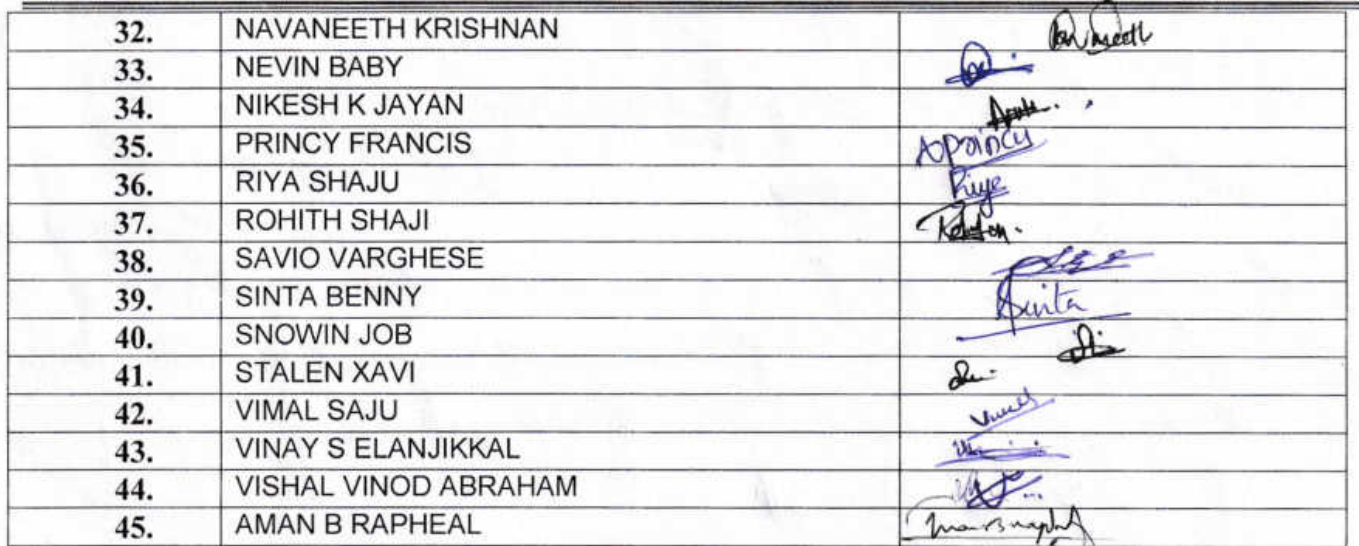 32. NAVANEETH KRISHNAN Navaneeth
33. NEVIN BABY
34. NIKESH K JAYAN
35. PRINCY FRANCIS Princy
36. RIYA SHAJU Riya
37. ROHITH SHAJI
38. SAVIO VARGHESE
39. SINTA BENNY Sinta
40. SNOWIN JOB
41. STALEN XAVI
42. VIMAL SAJU
43. VINAY S ELANJIKKAL
44. VISHAL VINOD ABRAHAM
45. AMAN B RAPHEAL